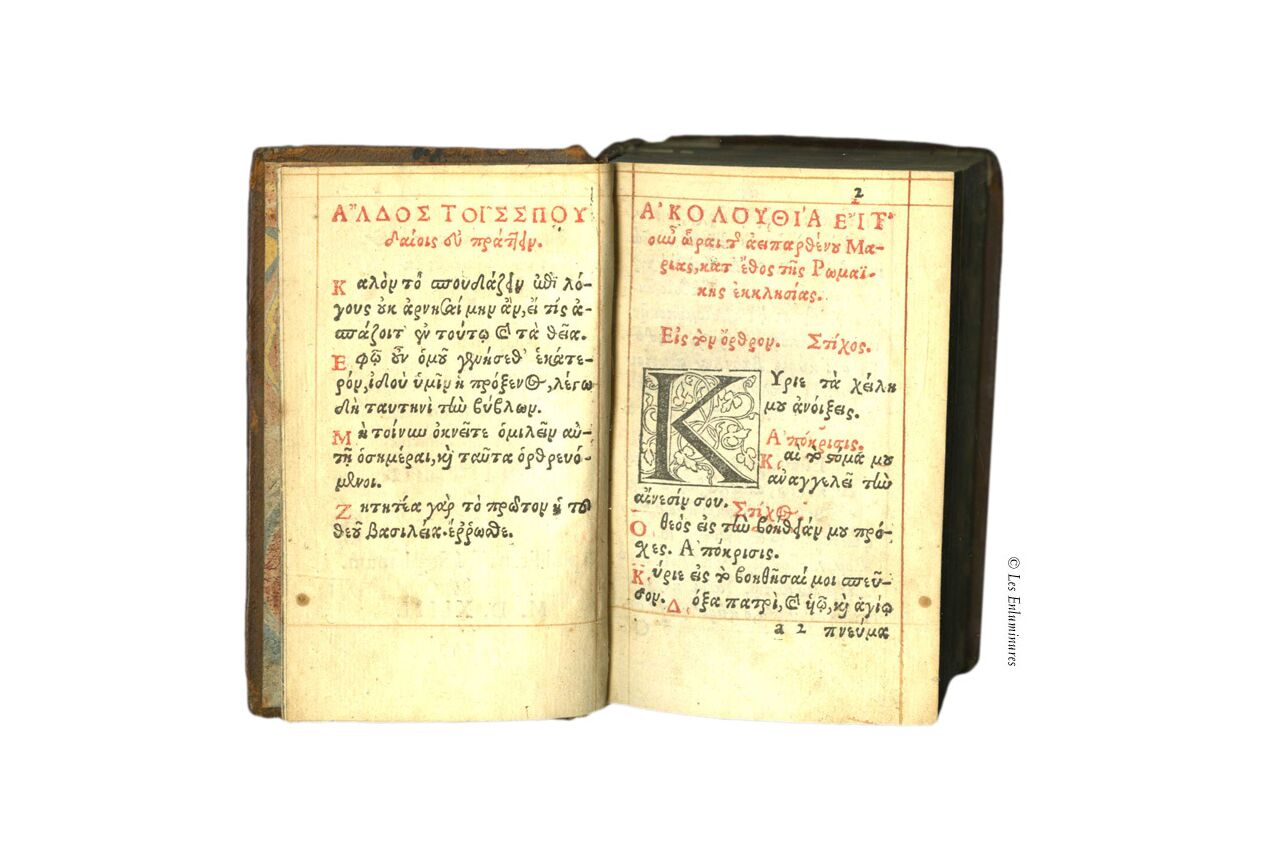 ἌΛΔΟΣ ΤΟΙΣ ΣΠΟΥ
δαίοις εὖ πράττειν.
Καλὸν τὸ σπουδάζειν ἐπὶ λό-
γους οὐκ ἀρνησαίμην ἄν, εἴ τίς ἀ-
σπάζοιτ' τούτῳ καὶ τὰ θεῖα.
Ἐφῷ οὖν ὁμοῦ γενήσεθ' ἑκάτε-
ρον, ἰδοὺ ὑμῖν ἡ πρόξενος, λέγω
δὴ ταυτηνὶ τὴν βύβλον.
Μὴ τοίνυν ὀκνεῖτε ὁμιλεῖν αὐ-
τῇ ὁσημέραι, καὶ ταῦτα ὀρθρευό-
μενοι.
Ζητητέα γὰρ τὸ πρῶτον ἡ τοῦ
θεοῦ βασιλεία. ἔρρωσθε.
2
ἈΚΟΛΟΥΘΊΑ ΕἸΣ
τὰς ὥρας τῆς ἀειπαρθένου Μα-
ρίας, κατ' ἔθος τῆς Ῥωμαϊ-
κῆς ἐκκλησίας.
Εἰς τὸν ὄρθρον. Στίχος.
Κύριε τὰ χείλη
μου ἀνοίξεις.
Ἀπόκρισις.
Καὶ τὸ στόμα μου
ἀναγγελεῖ τὴν
αἴνεσίν σου. Στίχος
Ὁ θεὸς εἰς τὴν βοήθειάν μου πρό-
χες. Ἀπόκρισις.
Κύριε εἰς τὸ βοηθῆσαί μοι σπεῦ-
σον. Δόξα πατρὶ, καὶ υἱῷ, καὶ ἁγίῳ
a 2 πνεύμα
© Les Enluminures